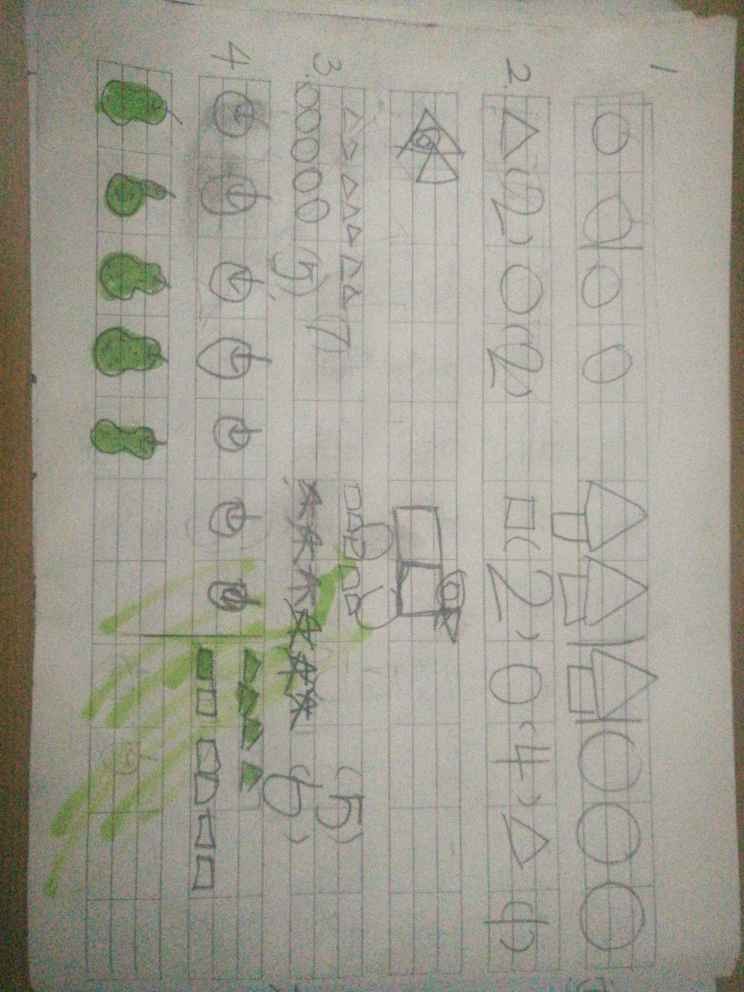 1
2. (2) (2) (2) (4)
3. (7 (5)
(5) (6)
4